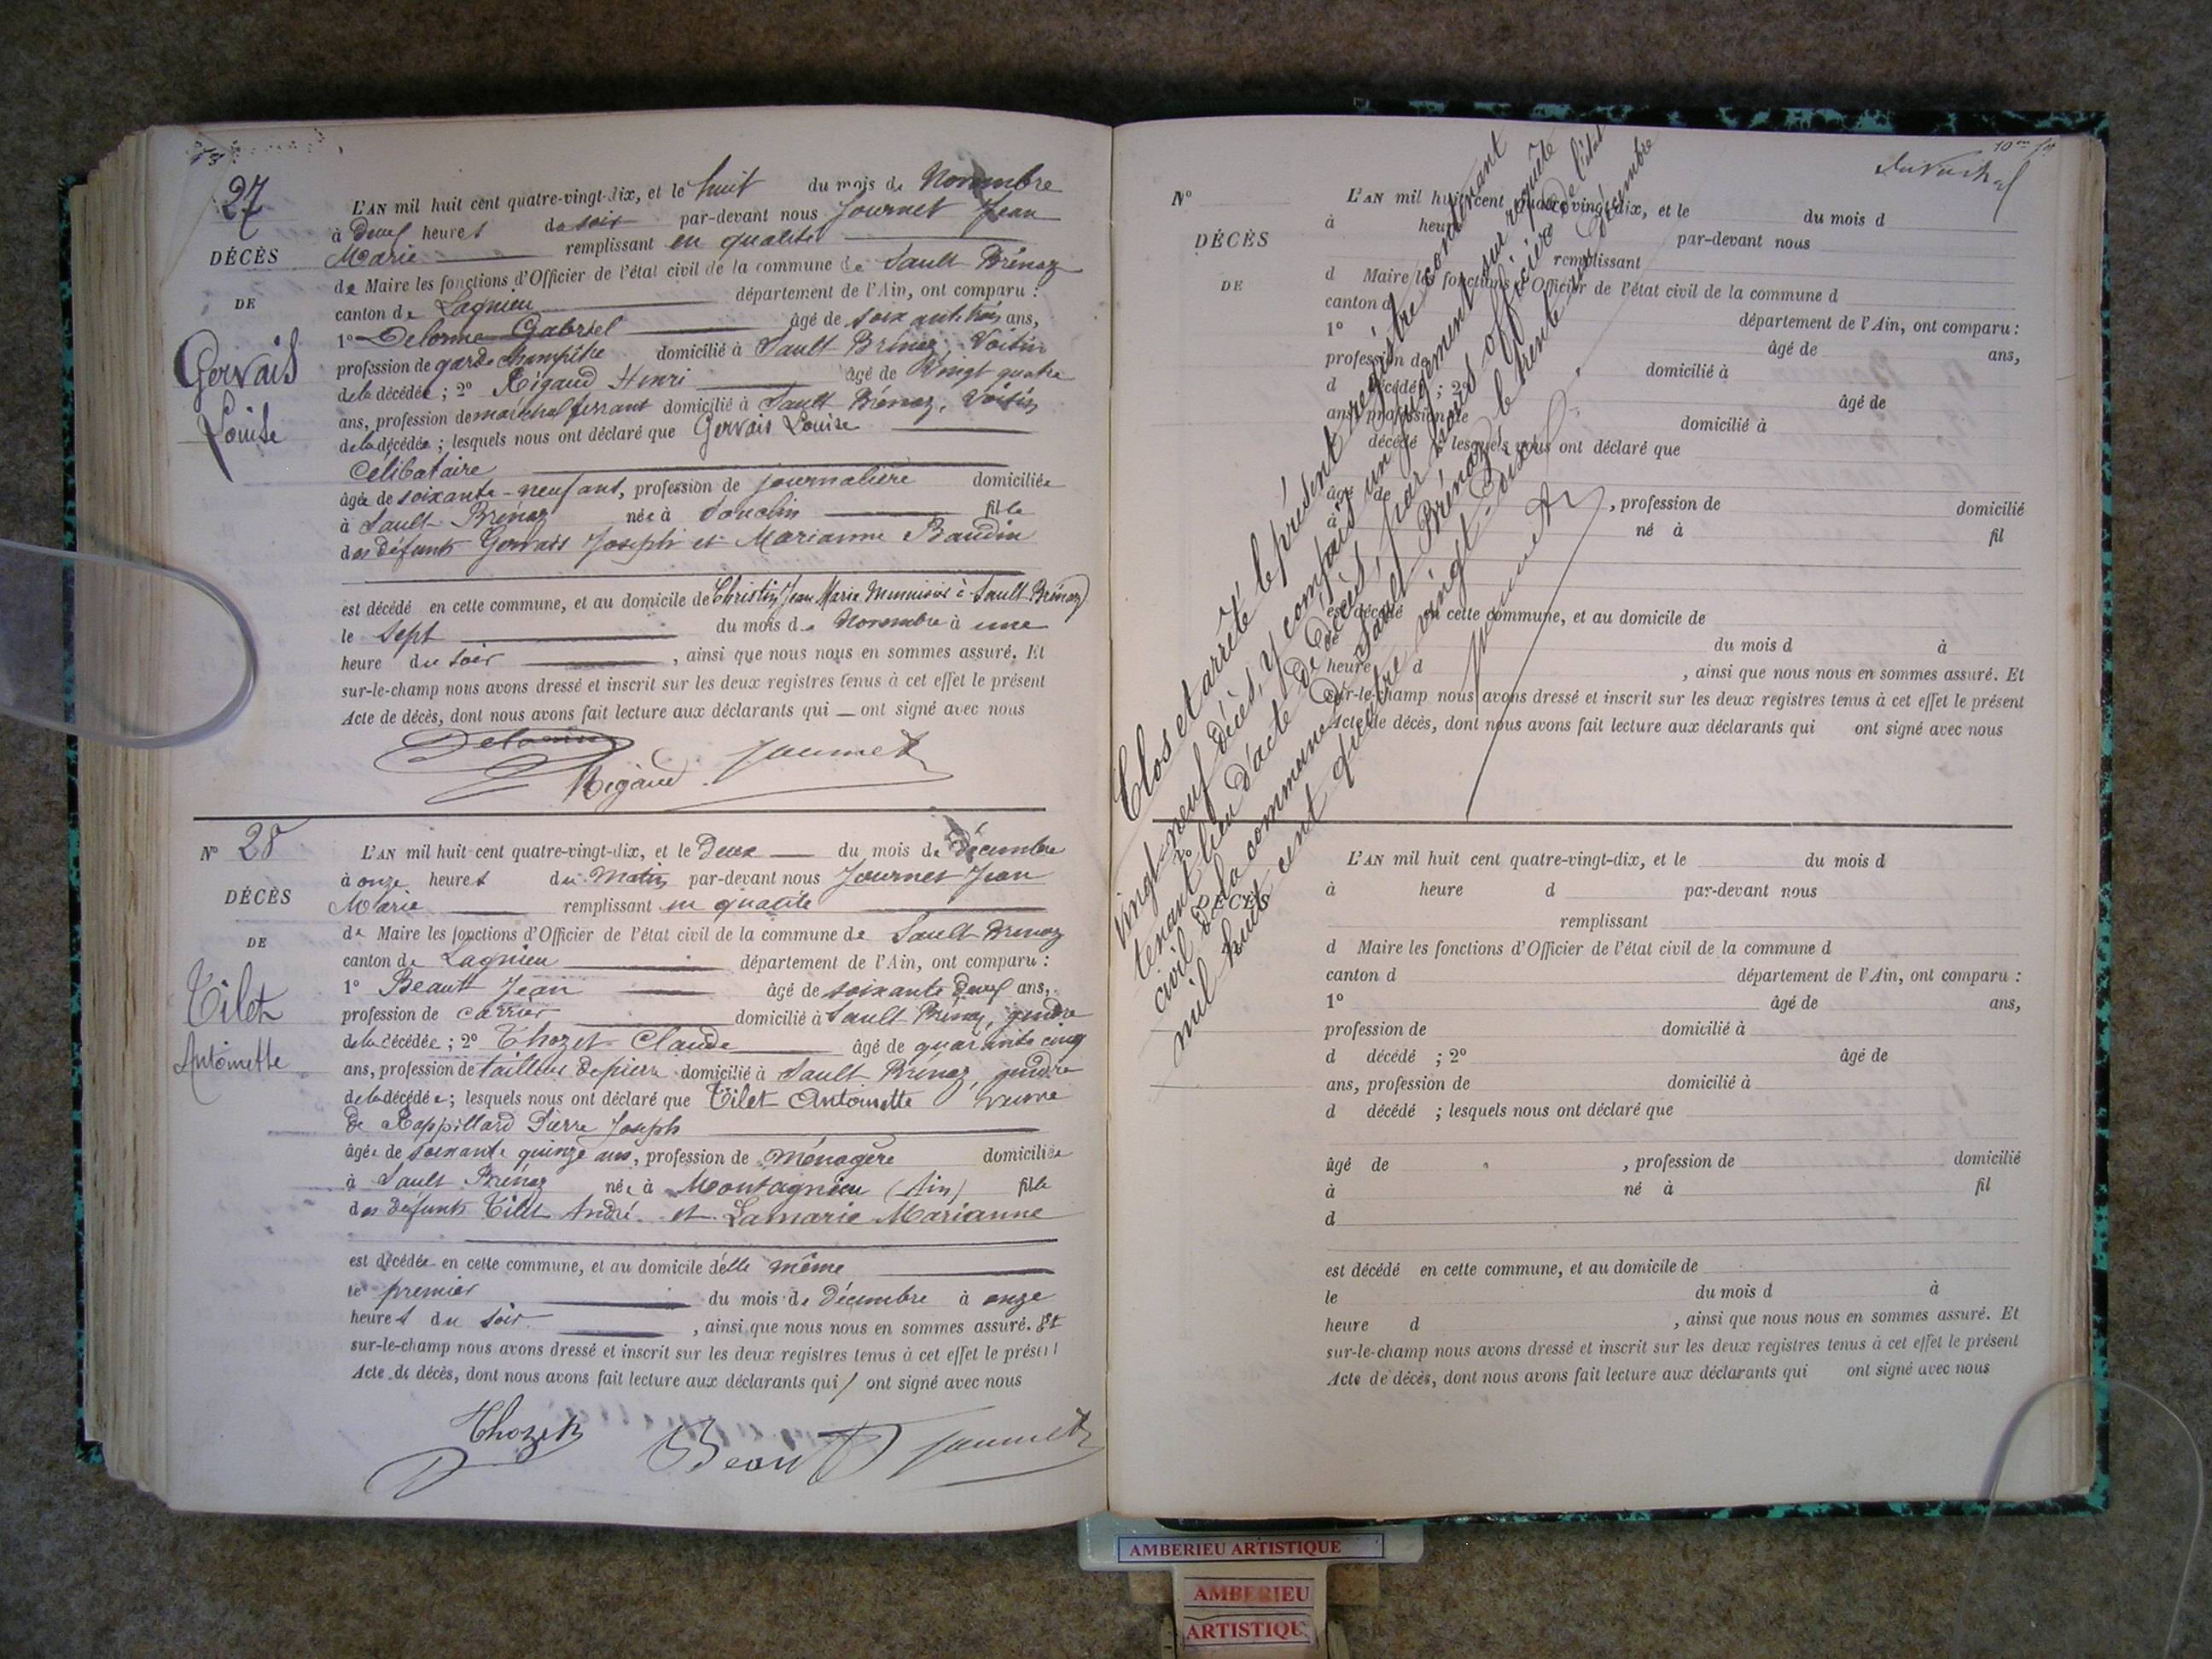 27
DÉCÈS
DE
Gervais
Louise
L'AN mil huit cent quatre-vingt-dix, et le huit du mois de Novembre
à deux heures du soir par-devant nous Journet Jean
Marie remplissant en qualité
de Maire les fonctions d'Officier de l'état civil de la commune de Sault Brénaz
canton de Lagnieu département de l'Ain, ont comparu :
1° Delorme Gabriel âgé de soixante trois ans,
profession de garde champêtre domicilié à Sault Brénaz, Voisin
de la décédée ; 2° Rigaud Henri âgé de Vingt quatre
ans, profession de maréchal ferrant domicilié à Sault Brénaz, Voisin
de la décédée ; lesquels nous ont déclaré que Gervais Louise
Célibataire
âgée de soixante-neuf ans, profession de journalière domiciliée
à Sault Brénaz née à Souclin fille
des défunts Gervais Joseph et Marianne Baudin
est décédé en cette commune, et au domicile de Christin Jean Marie Menuisier à Sault Brénaz
le sept du mois de Novembre à une
heure du soir , ainsi que nous nous en sommes assuré. Et
sur-le-champ nous avons dressé et inscrit sur les deux registres tenus à cet effet le présent
Acte de décès, dont nous avons fait lecture aux déclarants qui ont signé avec nous
Delorme
Rigaud Journet
N° 28
DÉCÈS
DE
Tilet
Antoinette
L'AN mil huit cent quatre-vingt-dix, et le deux du mois de décembre
à onze heures du Matin par-devant nous Journet Jean
Marie remplissant en qualité
de Maire les fonctions d'Officier de l'état civil de la commune de Sault Brénaz
canton de Lagnieu département de l'Ain, ont comparu :
1° Beaut Jean âgé de soixante deux ans,
profession de carrier domicilié à Sault Brénaz, gendre
de la décédée ; 2° Thozet Claude âgé de quarante cinq
ans, profession de tailleur de pierre domicilié à Sault Brénaz, gendre
de la décédée ; lesquels nous ont déclaré que Tilet Antoinette veuve
de Rappillard Pierre Joseph
âgée de soixante quinze ans, profession de Ménagère domiciliée
à Sault Brénaz née à Montagnieu (Ain) fille
des défunts Tilet André et Lamarie Marianne
est décédée en cette commune, et au domicile d'elle même
le premier du mois de décembre à onze
heures du soir , ainsi que nous nous en sommes assuré. Et
sur-le-champ nous avons dressé et inscrit sur les deux registres tenus à cet effet le présent
Acte de décès, dont nous avons fait lecture aux déclarants qui ont signé avec nous
Thozet Beaut Journet
10me
N°
DÉCÈS
DE
L'AN mil huit cent quatre-vingt-dix, et le du mois d
à heure par-devant nous
remplissant
d Maire les fonctions d'Officier de l'état civil de la commune d
canton d département de l'Ain, ont comparu :
1° âgé de ans,
profession de domicilié à
d décédé ; 2° âgé de
ans, profession de domicilié à
décédé lesquels nous ont déclaré que
âgé de , profession de domicilié
à né à fil
est décédé en cette commune, et au domicile de
le du mois d à
heure d , ainsi que nous nous en sommes assuré. Et
sur-le-champ nous avons dressé et inscrit sur les deux registres tenus à cet effet le présent
Acte de décès, dont nous avons fait lecture aux déclarants qui ont signé avec nous
Clos et arrêté le présent registre contenant
vingt-neuf décès, y compris un jugement sur requête
tenant lieu d'acte de décès, par nous officier de l'état
civil de la commune de Sault Brénaz le trente un Décembre
mil huit cent quatre vingt-dix
Journet
N°
DÉCÈS
L'AN mil huit cent quatre-vingt-dix, et le du mois d
à heure d par-devant nous
remplissant
d Maire les fonctions d'Officier de l'état civil de la commune d
canton d département de l'Ain, ont comparu :
1° âgé de ans,
profession de domicilié à
d décédé ; 2° âgé de
ans, profession de domicilié à
d décédé ; lesquels nous ont déclaré que
âgé de , profession de domicilié
à né à fil
d
est décédé en cette commune, et au domicile de
le du mois d à
heure d , ainsi que nous nous en sommes assuré. Et
sur-le-champ nous avons dressé et inscrit sur les deux registres tenus à cet effet le présent
Acte de décès, dont nous avons fait lecture aux déclarants qui ont signé avec nous
AMBERIEU ARTISTIQUE
AMBERIEU
ARTISTIQU